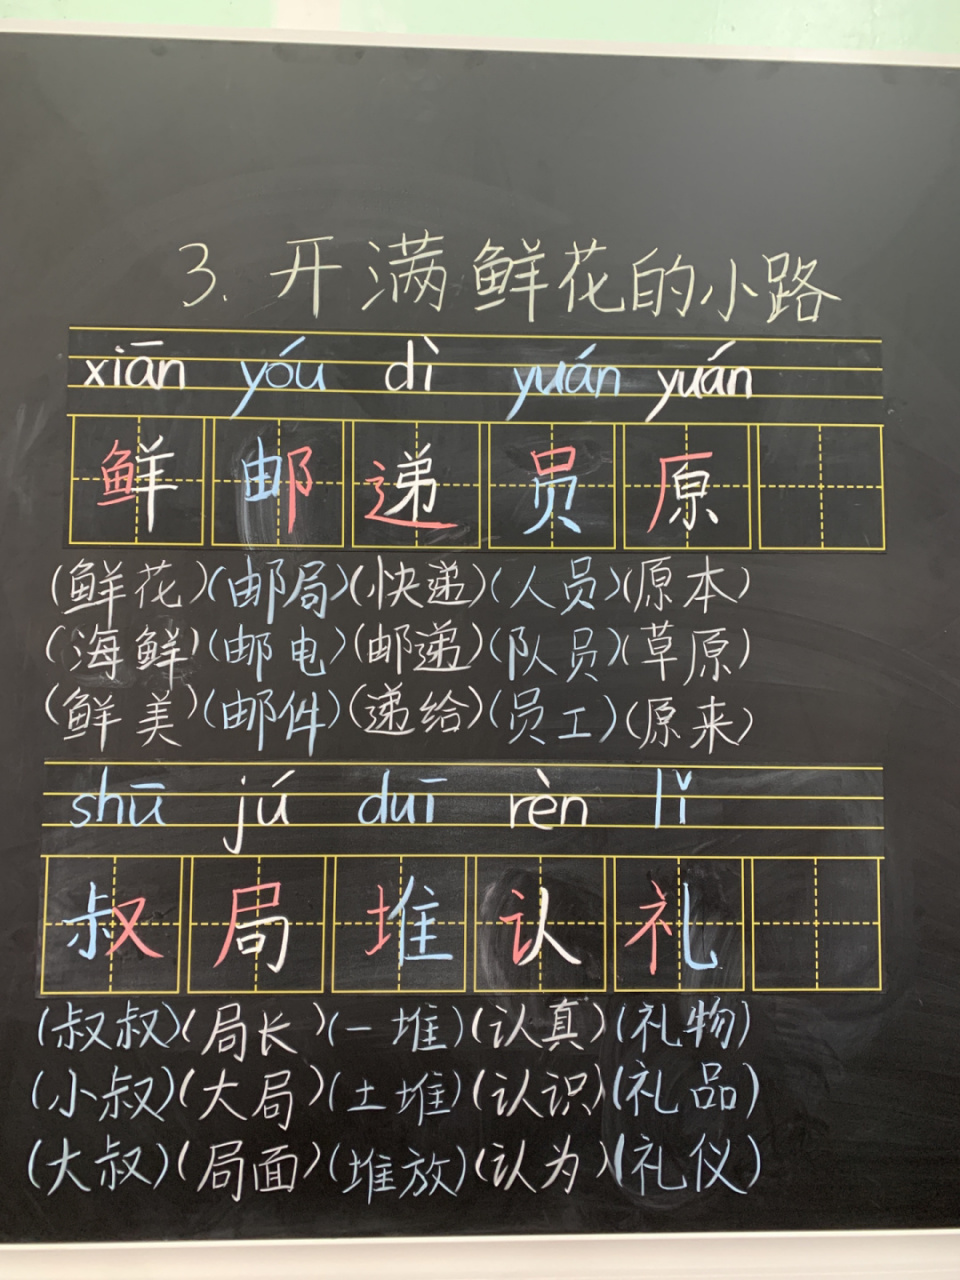 3. 开满鲜花的小路
xiān yóu dì yuán yuán
鲜 邮 递 员 原
(鲜花)(邮局)(快递)(人员)(原本)
(海鲜)(邮电)(邮递)(队员)(草原)
(鲜美)(邮件)(递给)(员工)(原来)
shū jú duī rèn lǐ
叔 局 堆 认 礼
(叔叔)(局长)(一堆)(认真)(礼物)
(小叔)(大局)(土堆)(认识)(礼品)
(大叔)(局面)(堆放)(认为)(礼仪)